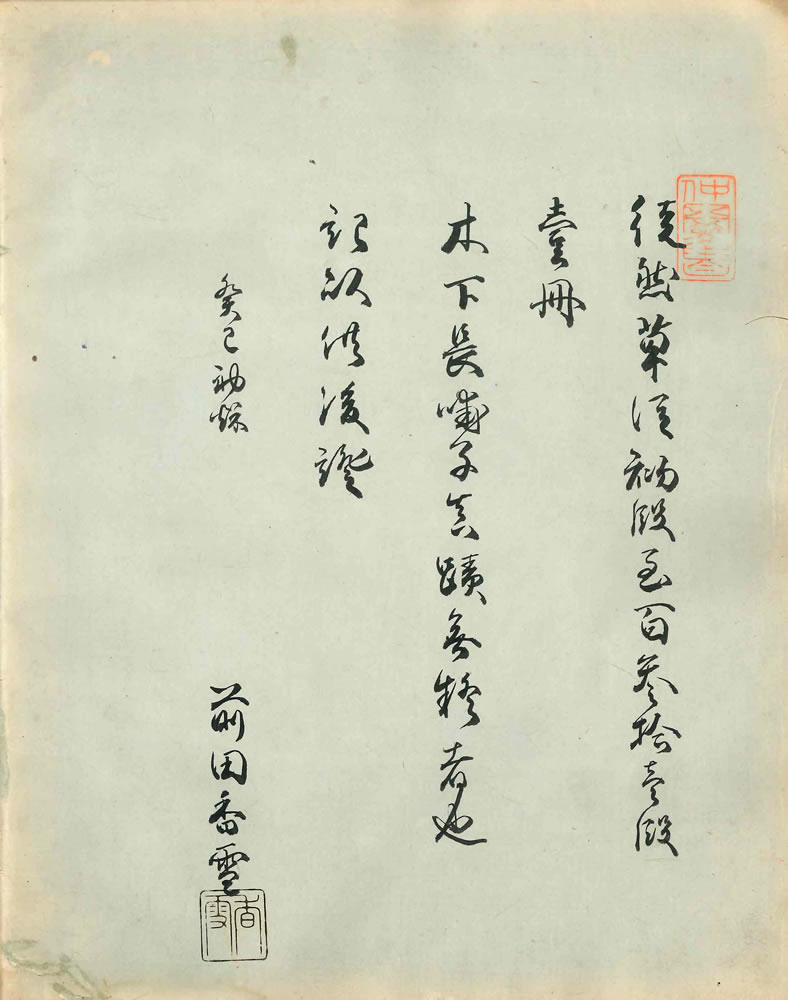 徒然草従初段至百参拾壱段
壹冊
木下長嘯子真蹟無疑者也
記以供後證
癸巳初秋
前田香雪
香雪